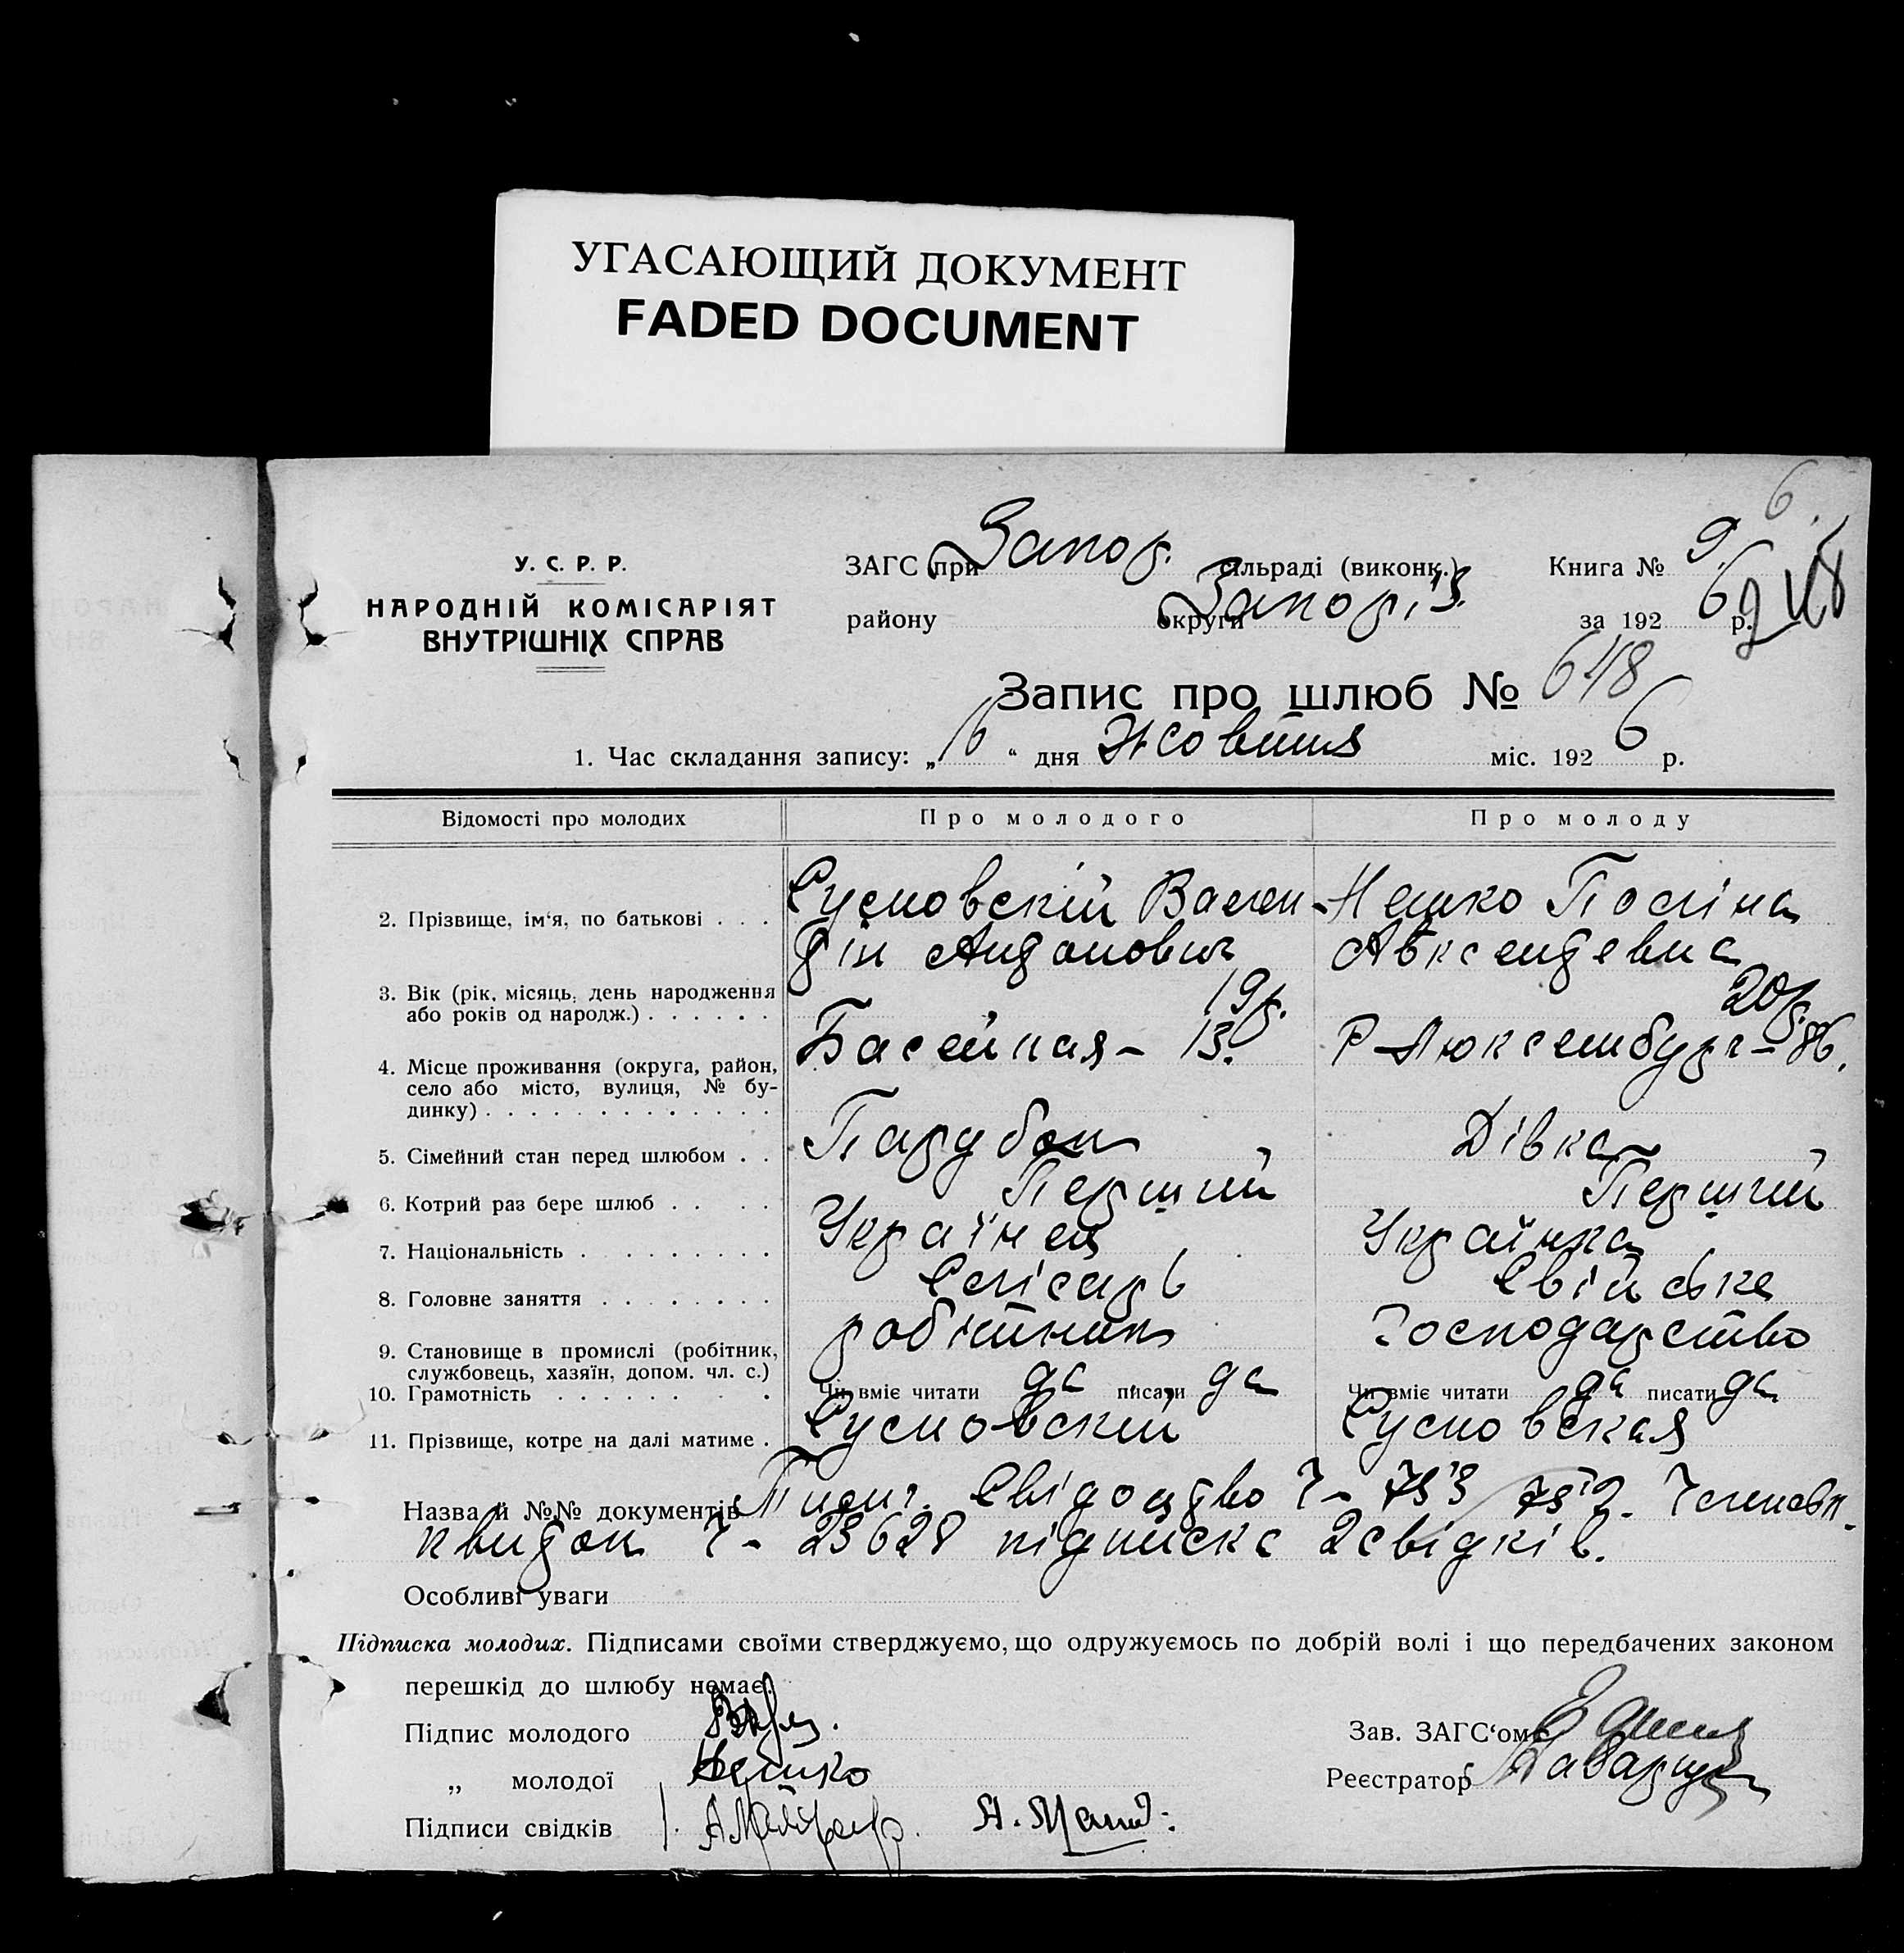 УГАСАЮЩИЙ ДОКУМЕНТ
FADED DOCUMENT
6.
У. С. Р. Р.
НАРОДНІЙ КОМІСАРІЯТ
ВНУТРІШНІХ СПРАВ
ЗАГС при Запор. сільраді (виконк.) Книга № 9.
району округи Запоріз. за 1926 р.
Запис про шлюб № 648
1. Час складання запису: „16“ дня Жовтня міс. 1926 р.
Відомості про молодих Про молодого Про молоду
2. Прізвище, ім‘я, по батькові . . . Сусновскій Вален- Нешко Поліна
тін Андонович Авксентевна
3. Вік (рік, місяць, день народження 19р. 20р.
або років од народж.) . . . . . .
4. Місце проживання (округа, район, Басейная - 13. Р Люксембург - 86.
село або місто, вулиця, № бу-
динку) . . . . . . . . . . . . .
5. Сімейний стан перед шлюбом . . Парубок Дівка
6. Котрий раз бере шлюб . . . . Перший Перший
7. Національність . . . . . . . . . Українец Українка
8. Головне заняття . . . . . . . . Слісарь Свійське
9. Становище в промислі (робітник, робітник господарство
службовець, хазяїн, допом. чл. с.)
10. Грамотність . . . . . . . Чи вміє читати да писати да Чи вміє читати да писати да
11. Прізвище, котре на далі матиме . Сусновский Сусновская
Назва й №№ документів свідоцтво
квиток 23628 підписка 2 свідків.
Особливі уваги
Підписка молодих. Підписами своїми стверджуємо, що одружуємось по добрій волі і що передбачених законом
перешкід до шлюбу немає.
Підпис молодого Зав. ЗАГС‘ом
„ молодої Нешко Реєстратор
Підписи свідків 1.